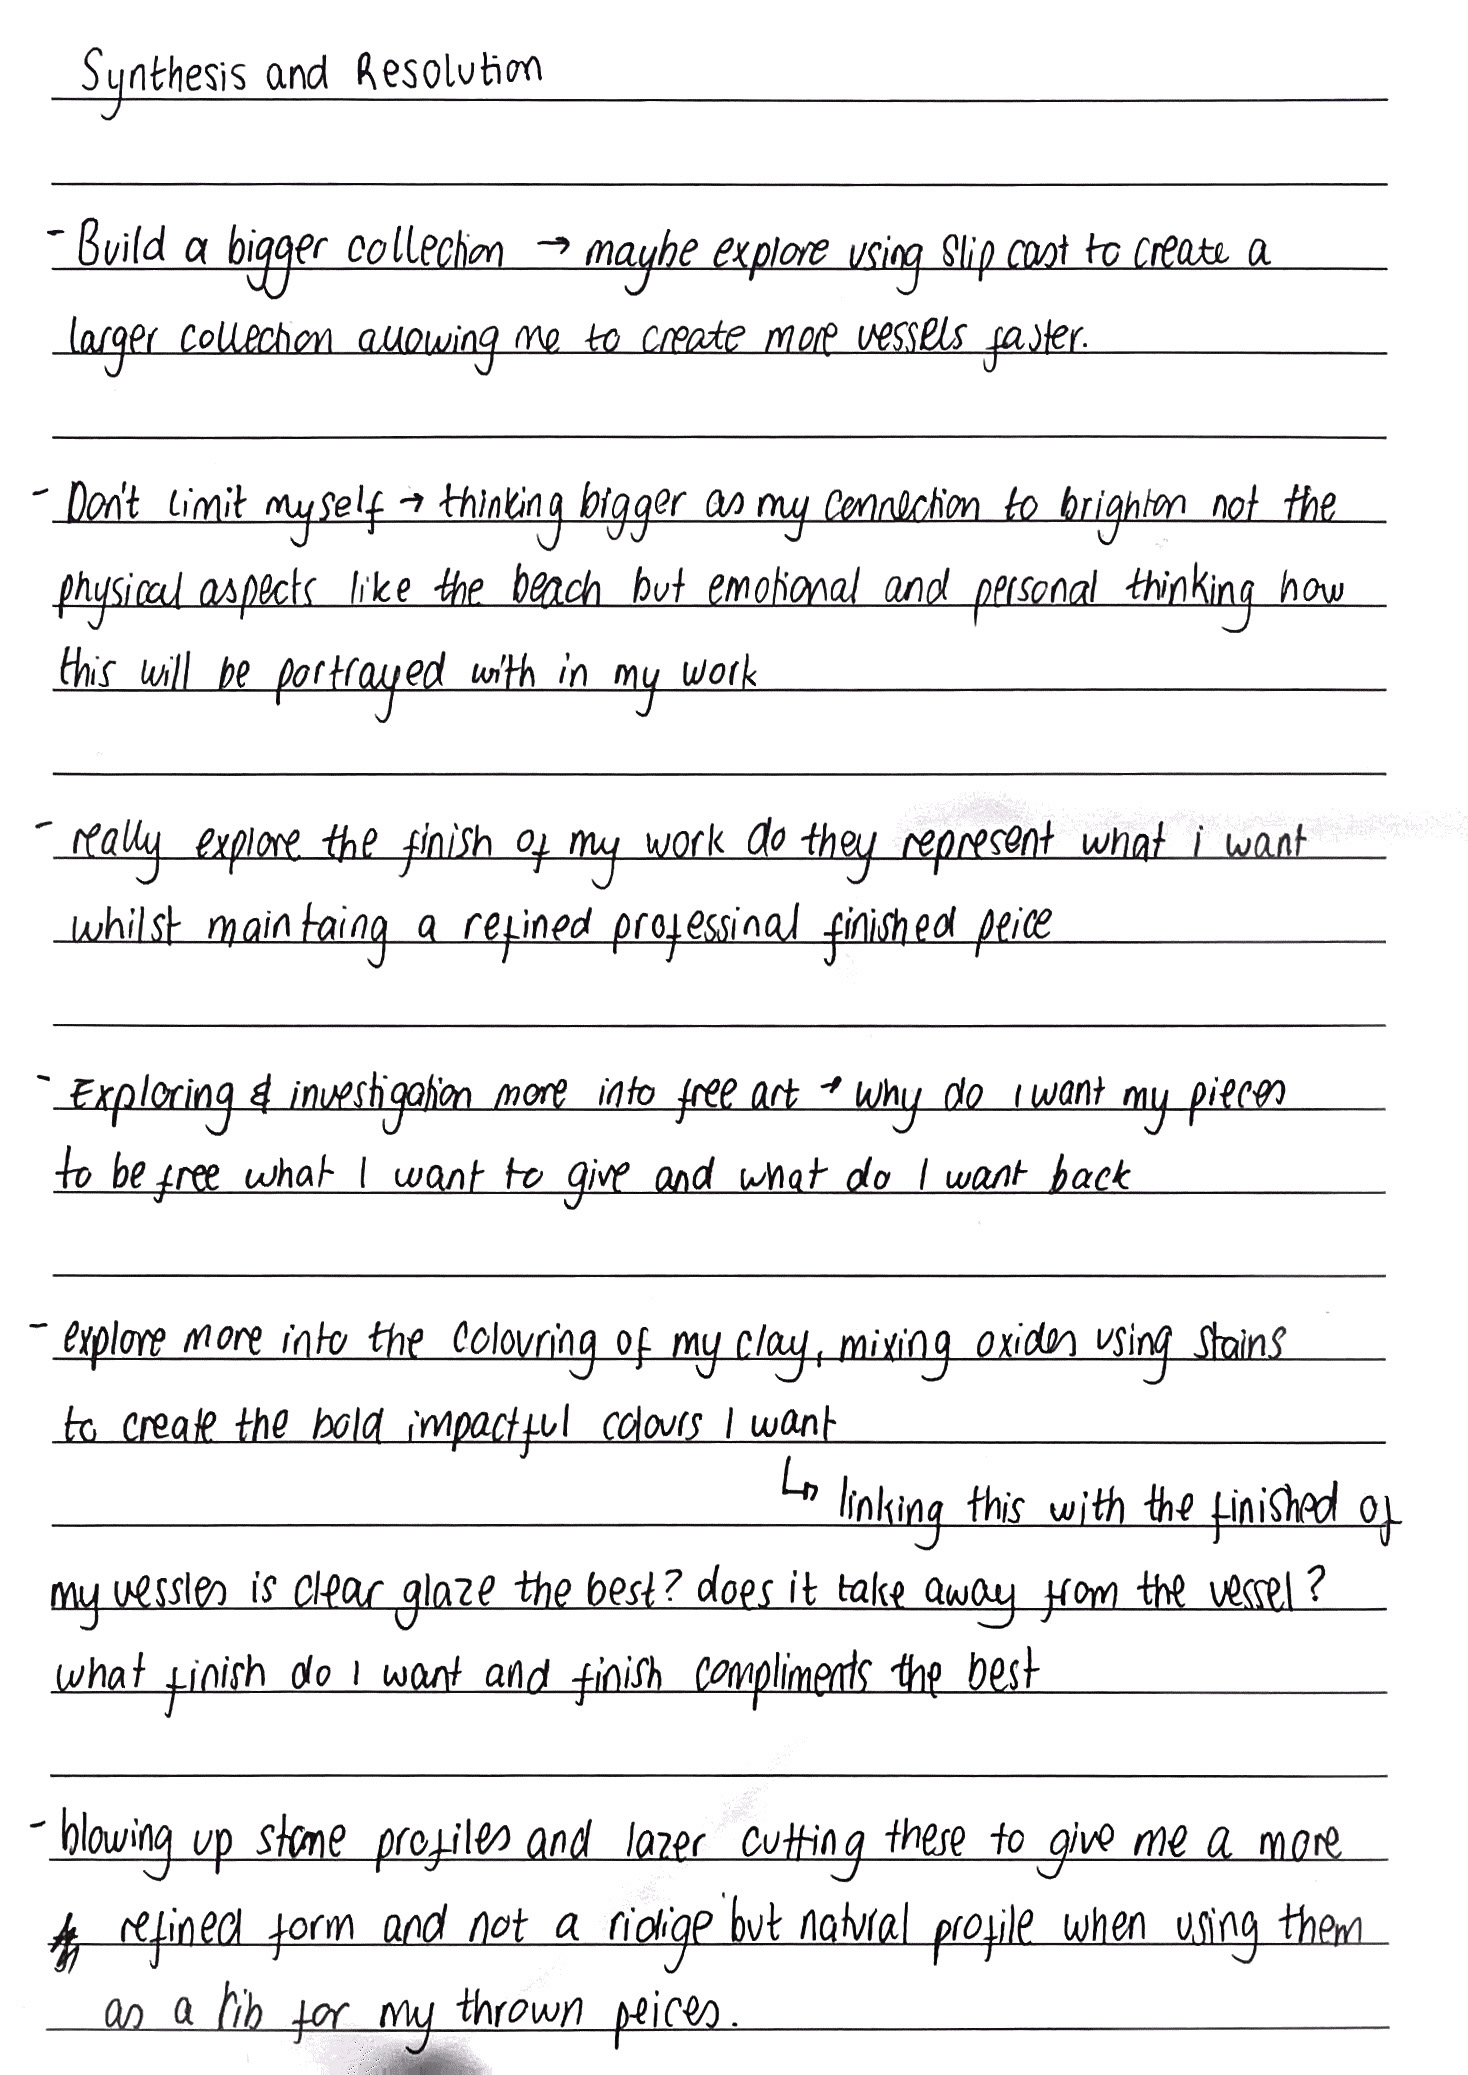 Synthesis and Resolution
- Build a bigger collection → maybe explore using slip cast to create a
larger collection allowing me to create more vessels faster.
- Don't limit myself → thinking bigger as my connection to brighton not the
physical aspects like the beach but emotional and personal thinking how
this will be portrayed with in my work
- really explore the finish of my work do they represent what i want
whilst maintaing a refined professinal finished peice
- Exploring & investigation more into free art → why do I want my pieces
to be free what I want to give and what do I want back
- explore more into the colouring of my clay, mixing oxides using stains
to create the bold impactful colours I want
↳ linking this with the finished of
my vessles is clear glaze the best? does it take away from the vessel?
what finish do I want and finish compliments the best
- blowing up stone profiles and lazer cutting these to give me a more
refined form and not a ridige but natural profile when using them
as a rib for my thrown peices.